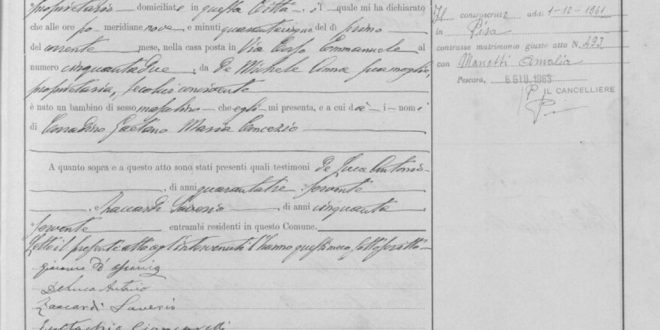 proprietario domiciliato in questa Città, il quale mi ha dichiarato
che alle ore po meridiane nove e minuti quarantacinque del dì primo
del corrente mese, nella casa posta in Via Corso Emmanuele al
numero cinquantadue, da De Michele Anna sua moglie,
proprietaria, seco lui convivente
è nato un bambino di sesso maschile che egli mi presenta, e a cui dà i nomi
di Corradino Gaetano Maria
A quanto sopra e a questo atto sono stati presenti quali testimoni De Luca Antonio
, di anni quarantatre servente
, Zaccardi Saverio, di anni cinquanta
servente entrambi residenti in questo Comune.
Letto il presente atto agl'intervenuti l'hanno questi meco sottoscritto
De Luca Antonio
Zaccardi Saverio
Eustachio
Il addì 1-12-1961
in Pisa
contrasse matrimonio giusto atto N. 493
con Amalia
Pescara, 6 GIU. 1963
IL CANCELLIERE